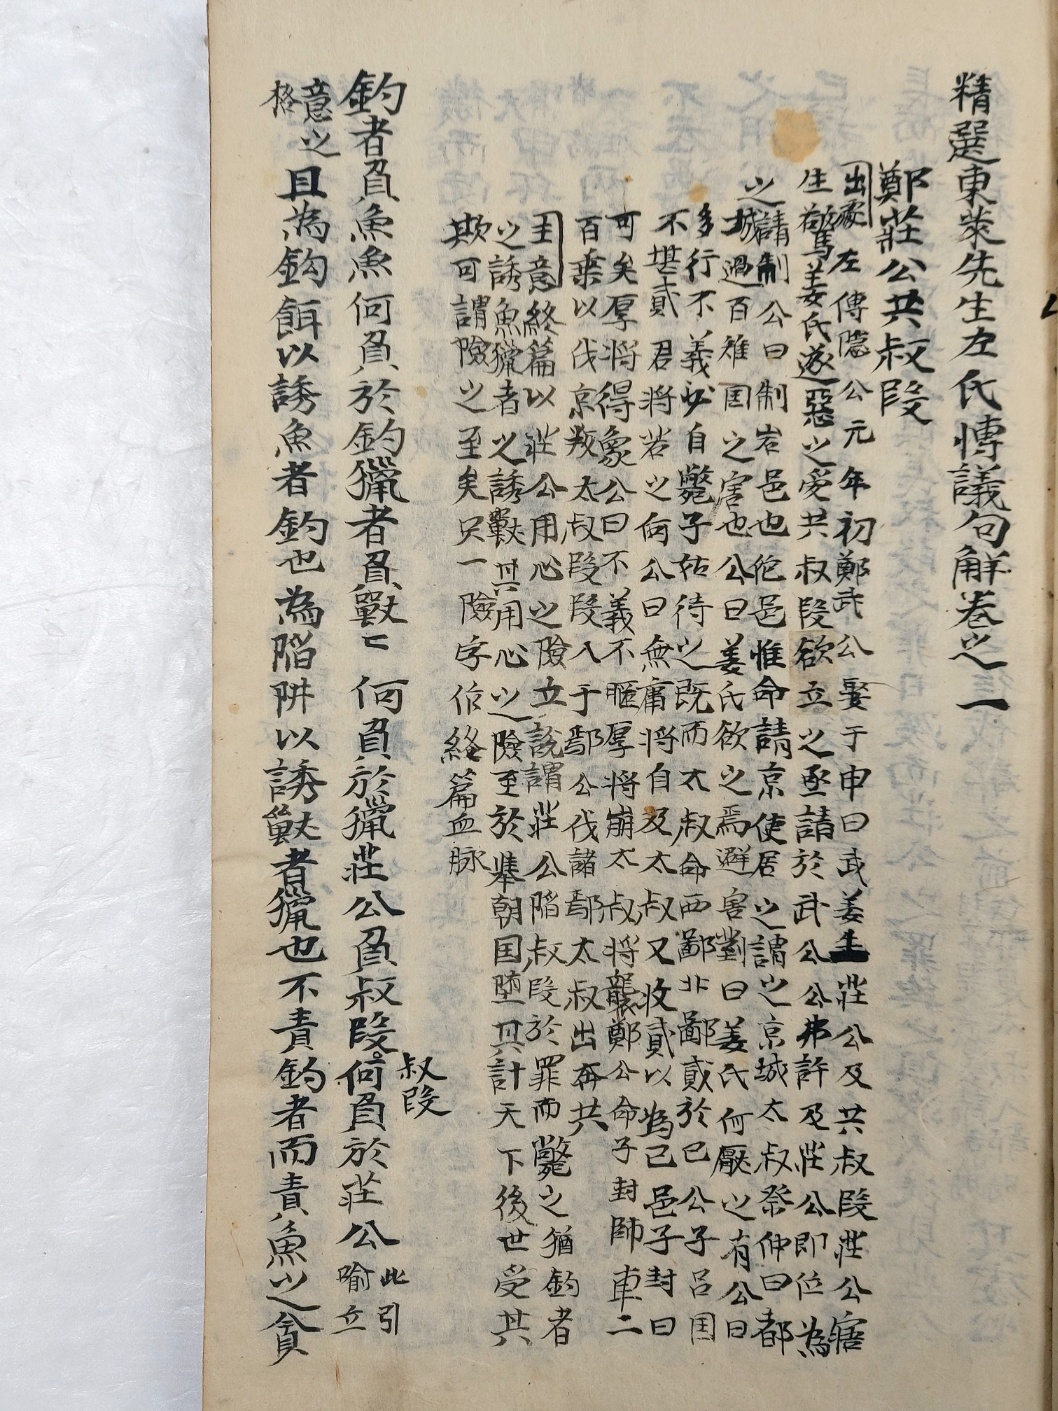 精選東萊先生左氏博議句觧巻之一
鄭莊公共叔段
出處左傳隠公元年初鄭武公娶于申曰武姜生莊公及共叔段莊公寤
生驚姜氏遂惡之愛共叔段欲立之亟請於武公公弗許及莊公即位為
之請制公曰制岩邑也佗邑惟命請京使居之謂之京城太叔祭仲曰都
城過百雉国之害也公曰姜氏欲之焉避害對曰姜氏何厭之有公曰
多行不義必自斃子姑待之既而太叔命西鄙北鄙貳於己公子吕国
不堪貳君將若之何公曰無庸將自及太叔又收貳以為己邑子封曰
可矣厚将得衆公曰不義不暱厚将崩太叔将襲鄭公命子封帥車二
百乗以伐京叛太叔段段入于鄢公伐諸鄢太叔出奔共
主意終篇以莊公用心之險立說謂莊公陷叔段於罪而斃之猶釣者
之誘魚獵者之誘獸其用心之險至於舉朝国堕其計天下後世受其
欺可謂險之至矣只一險字作終篇血脉
釣者負魚魚何負於釣獵者負獸〻何負於獵莊公負叔段叔段何負於莊公此引喻立
意之格且為鈎餌以誘魚者釣也為陷阱以誘獸者獵也不責釣者而責魚之貪